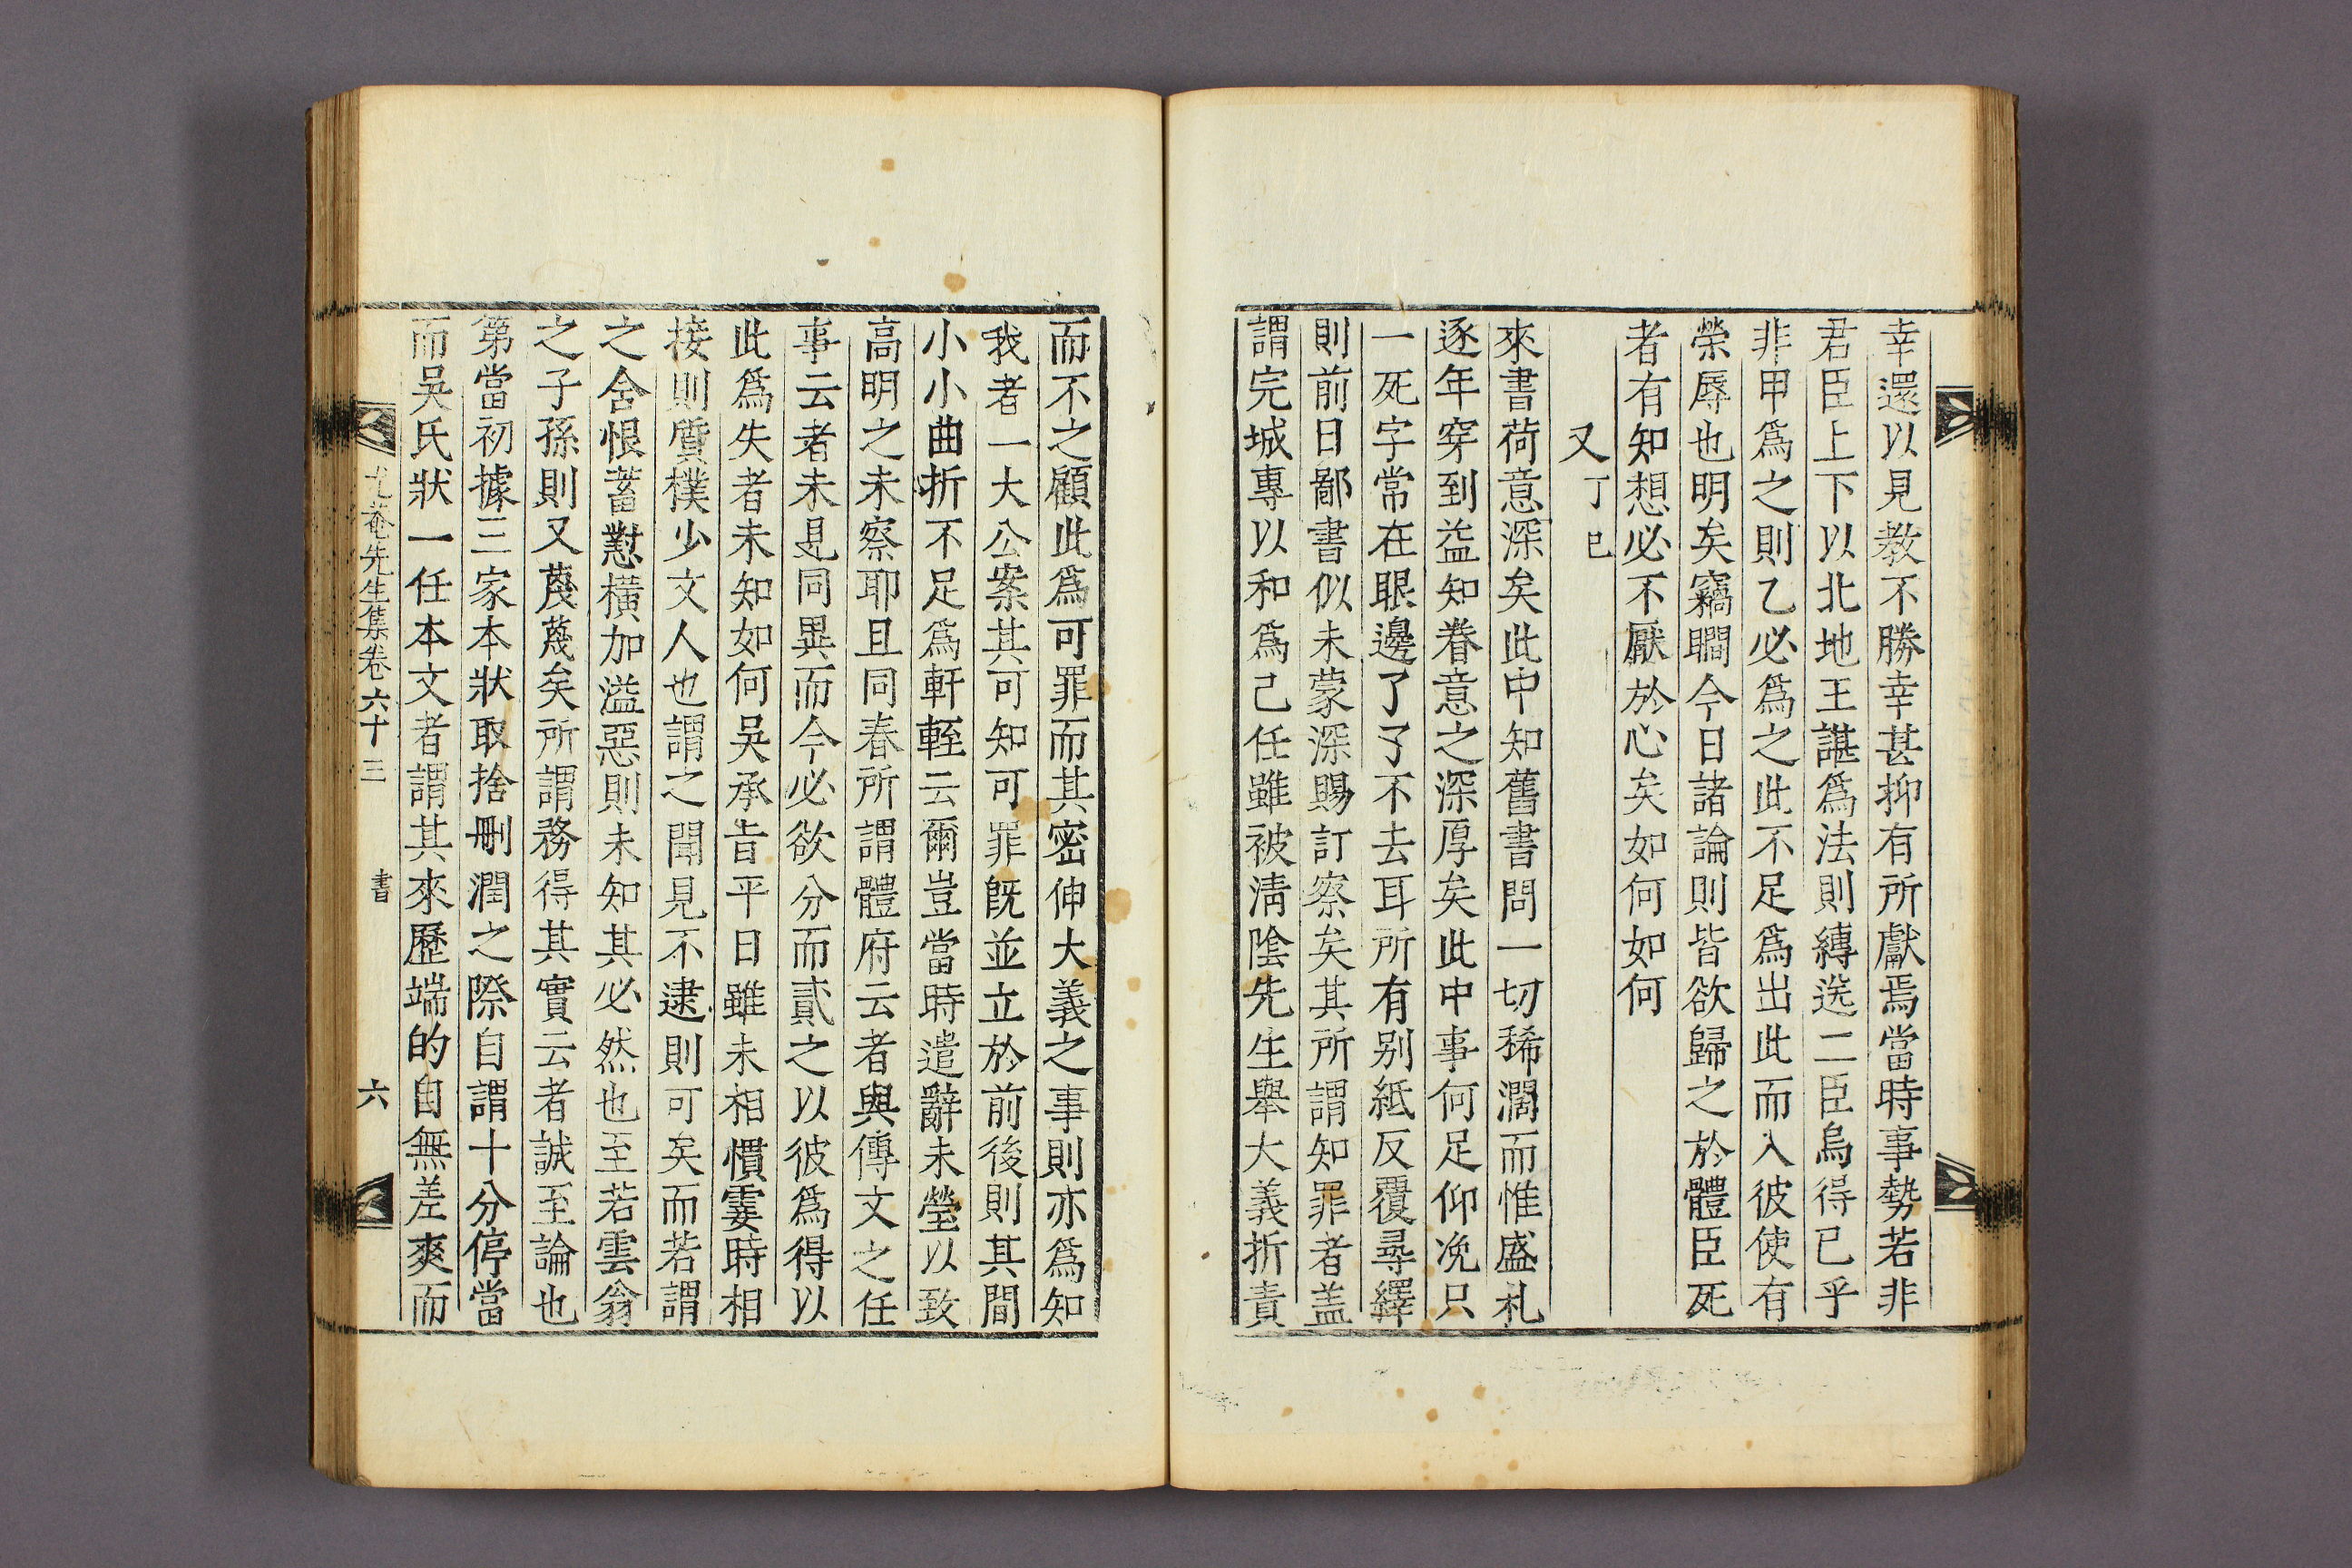 幸還以見教不勝幸甚抑有所獻焉當時事勢若非
君臣上下以北地王諶爲法則縛送二臣烏得已乎
非甲爲之則乙必爲之此不足爲出此而入彼使有
榮辱也明矣竊瞯今日諸論則皆欲歸之於體臣死
者有知想必不厭於心矣如何如何
又丁巳
來書荷意深矣此中知舊書問一切稀濶而惟盛札
逐年穿到益知眷意之深厚矣此中事何足仰浼只
一死字常在眼邊了了不去耳所有别紙反覆尋繹
則前日鄙書似未蒙深賜訂察矣其所謂知罪者盖
謂完城專以和爲己任雖被淸陰先生舉大義折責
而不之顧此爲可罪而其密伸大義之事則亦爲知
我者一大公案其可知可罪旣並立於前後則其間
小小曲折不足爲軒輊云爾豈當時遣辭未瑩以致
高明之未察耶且同春所謂體府云者與傳文之任
事云者未見同異而今必欲分而貳之以彼爲得以
此爲失者未知如何吳承旨平日雖未相慣霎時相
接則質樸少文人也謂之聞見不逮則可矣而若謂
之含恨蓄懟橫加溢惡則未知其必然也至若雲翁
之子孫則又蔑蔑矣所謂務得其實云者誠至論也
第當初據三家本狀取捨刪潤之際自謂十分停當
而吳氏狀一任本文者謂其來歷端的自無差爽而
尤菴先生集卷六十三 書 六